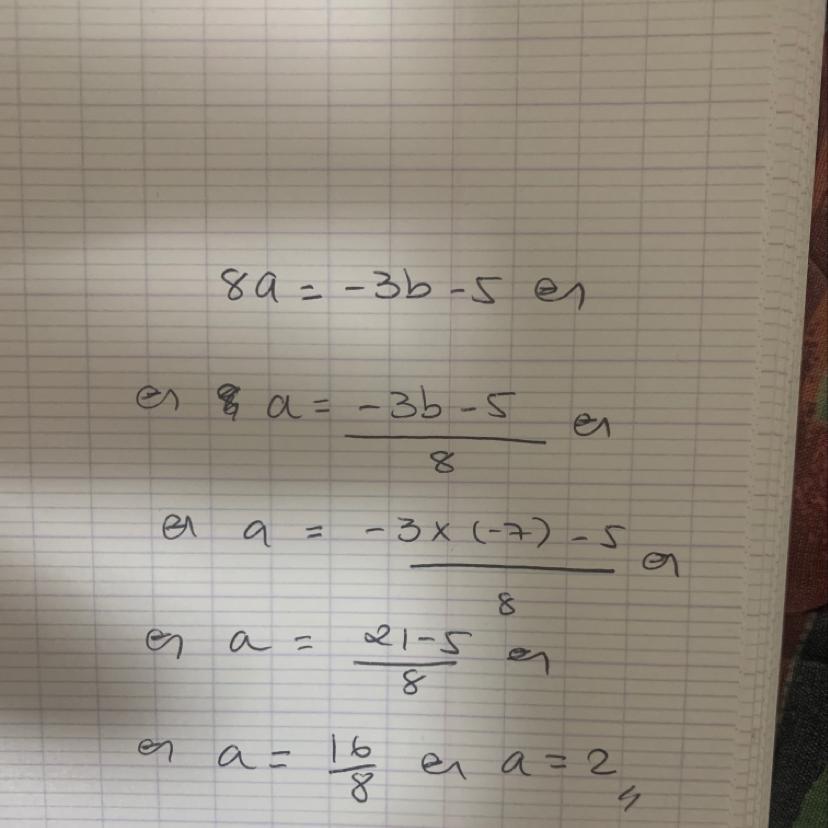 8a = -3b - 5 ⇔
⇔ a = (-3b - 5)/8 ⇔
⇔ a = (-3 x (-7) - 5)/8 ⇔
⇔ a = (21 - 5)/8 ⇔
⇔ a = 16/8 ⇔ a = 2 //